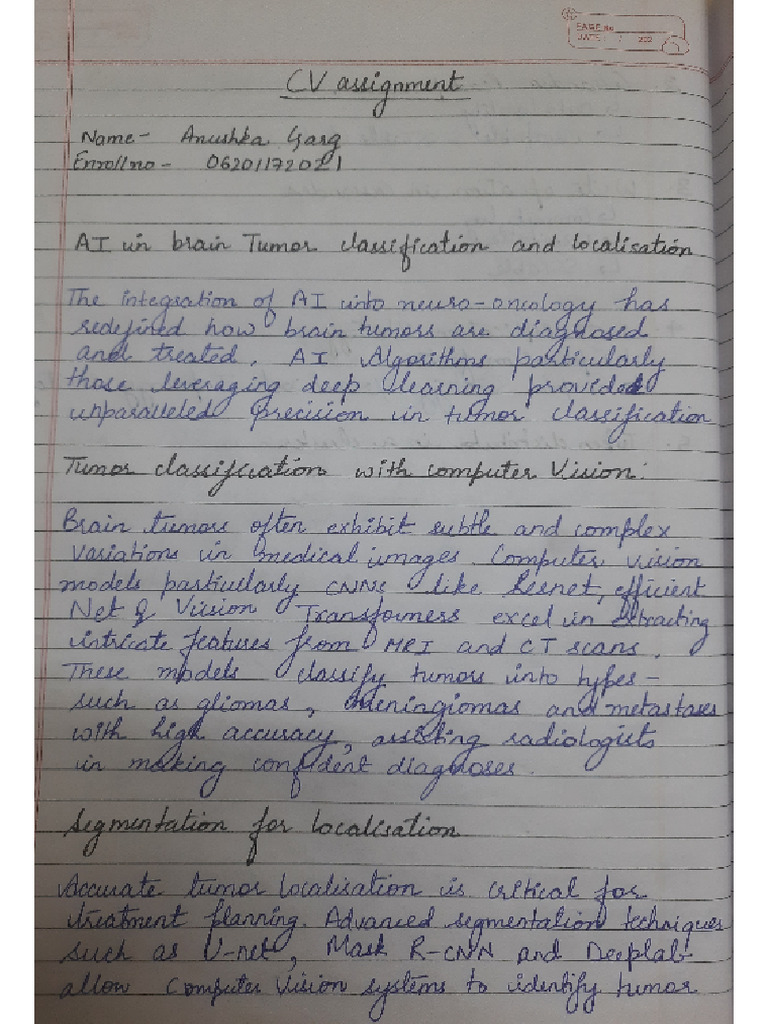 PAGE No.
DATE: / / 202
CV assignment
Name- Anushka Garg
Enroll no - 06201172021
AI in brain Tumor classification and localisation
The integration of AI into neuro-oncology has
redefined how brain tumors are diagnosed
and treated. AI Algorithms particularly
those leveraging deep learning provided
unparalleled precision in tumor classification
Tumor classification with computer Vision:
Brain tumors often exhibit subtle and complex
variations in medical images. Computer vision
models particularly CNNs like Resnet, efficient
Net & Vision Transformers excel in extracting
intricate features from MRI and CT scans.
These models classify tumors into types-
such as gliomas, meningiomas and metastases
with high accuracy, assisting radiologists
in making confident diagnoses.
Segmentation for localisation
Accurate tumor localisation is critical for
treatment planning. Advanced segmentation techniques
such as U-net, Mask R-CNN and Deeplab-
allow Computer Vision systems to identify tumor